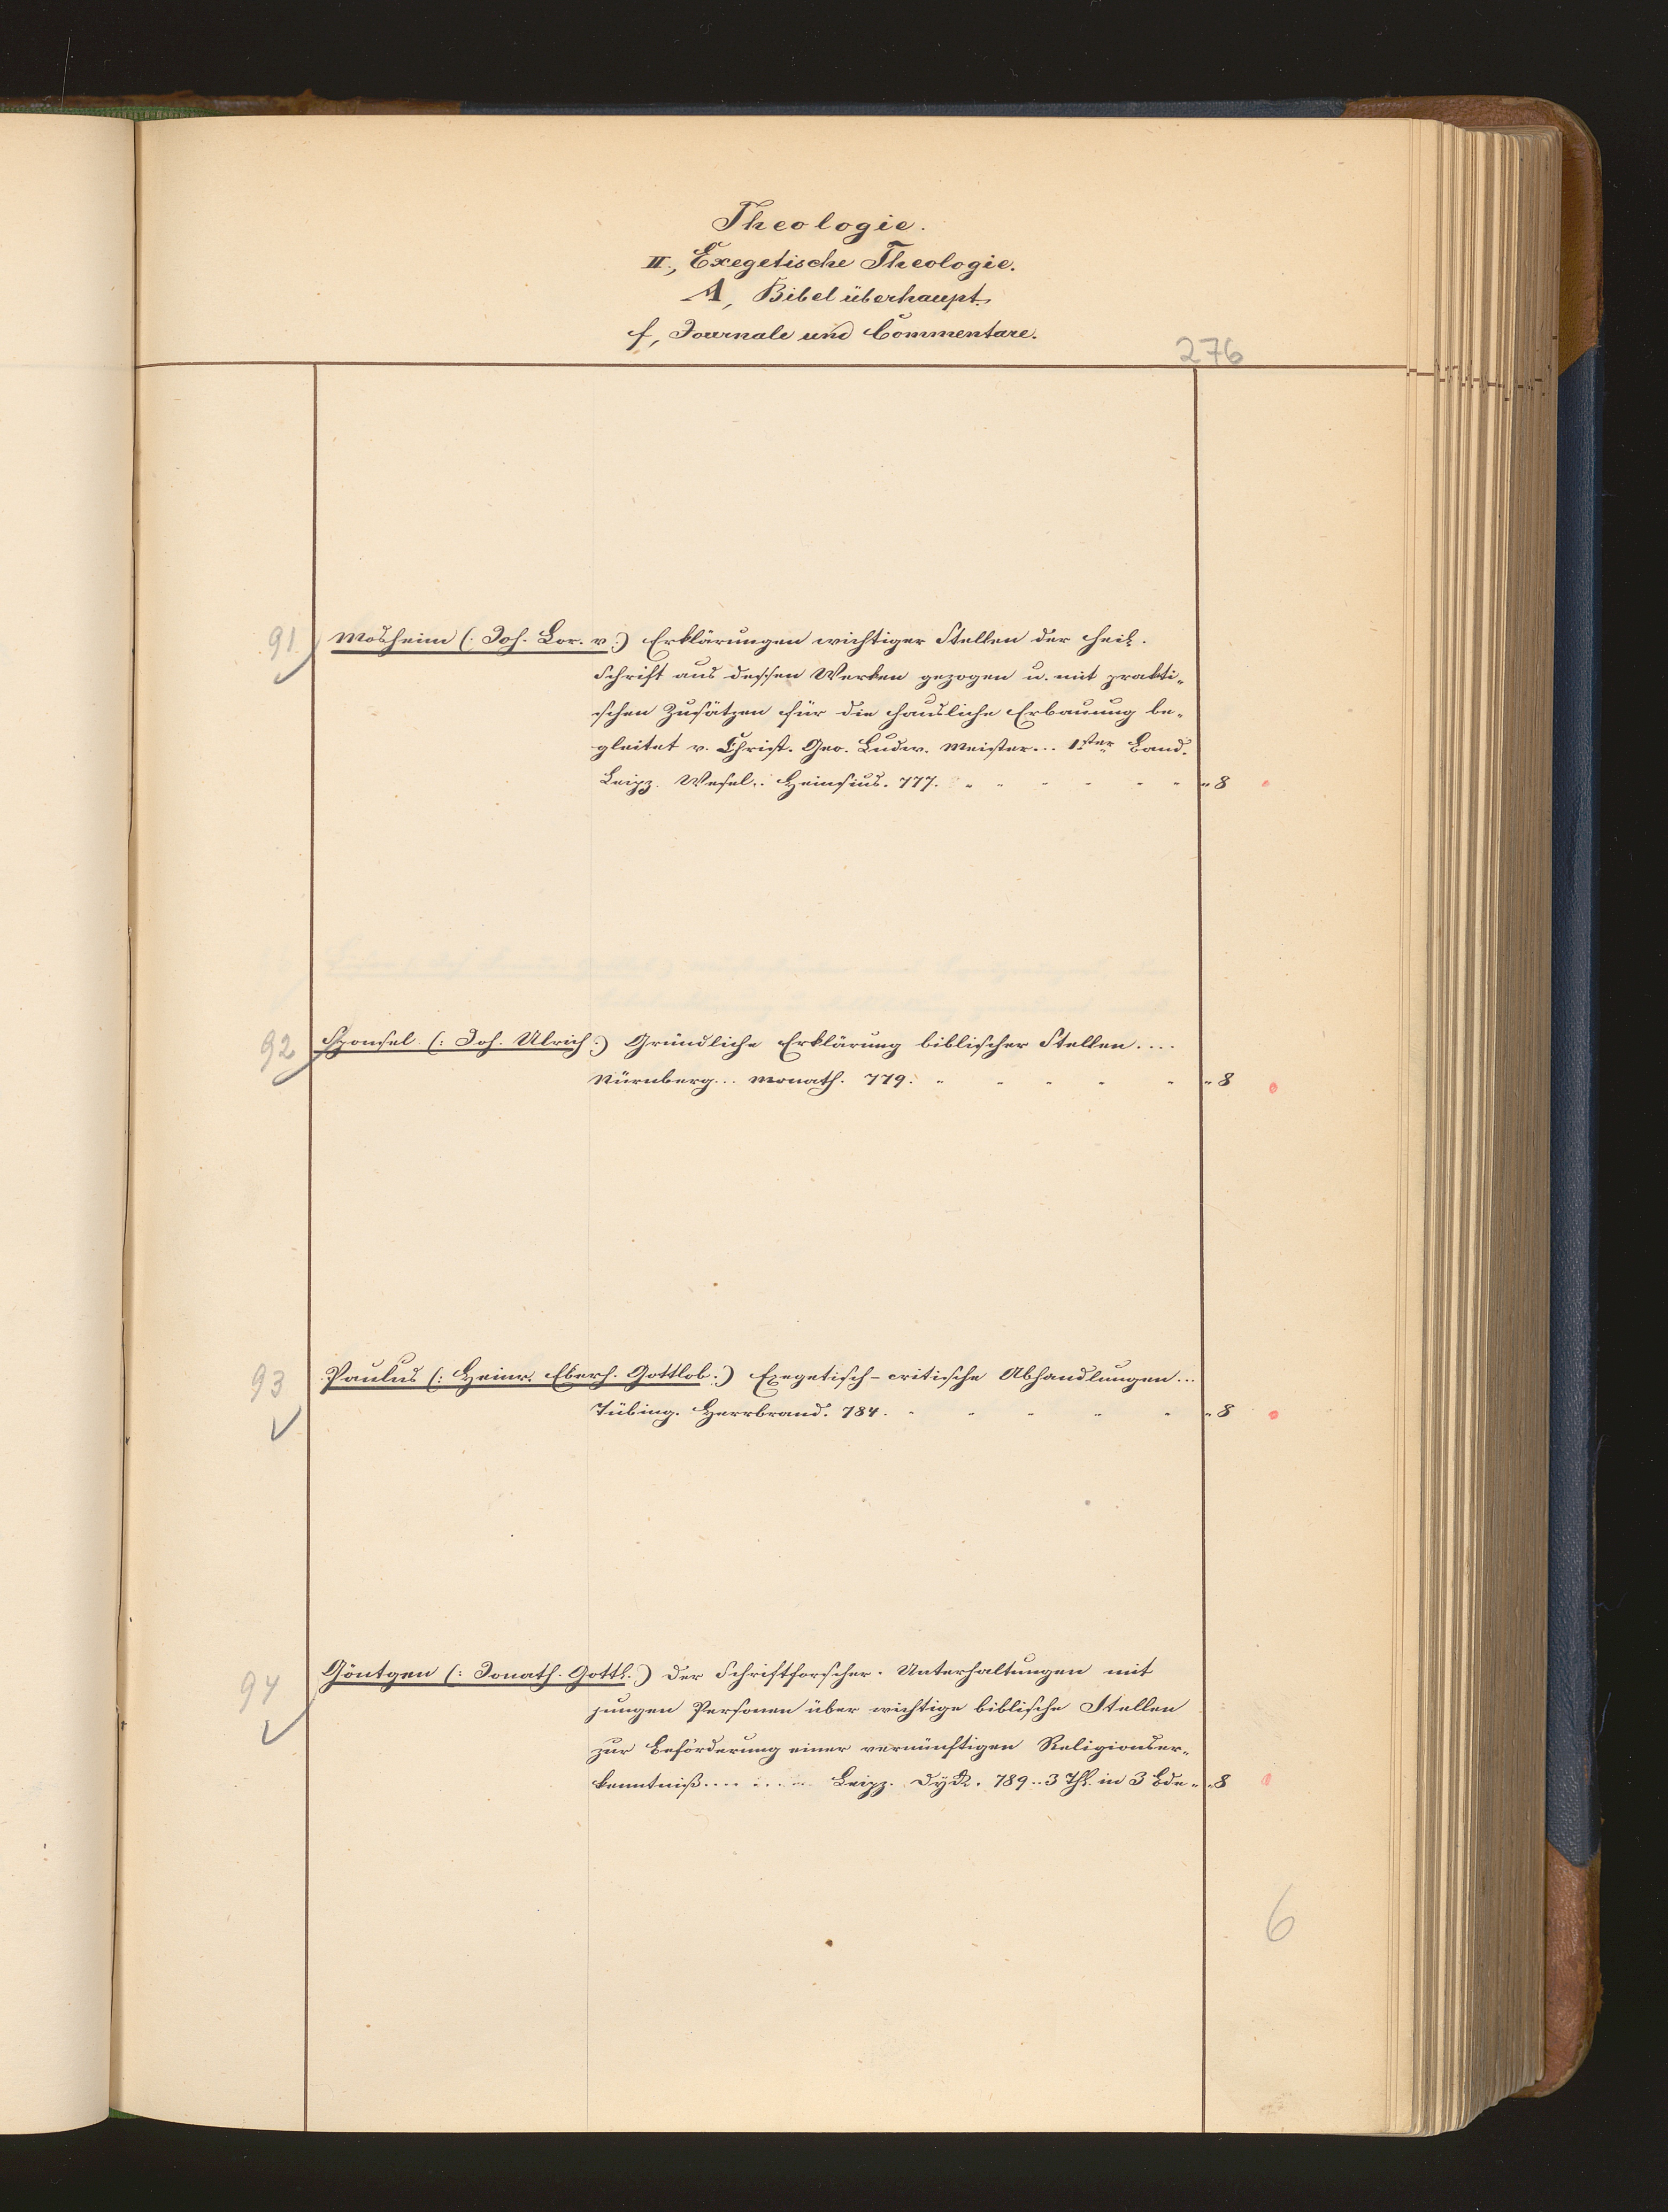 Theologie.
II., Exegetische Theologie.
A, Bibel überhaupt.
f, Journale und Commentare.
276
91 Mosheim (: Joh. Lor. v.:) Erklärungen wichtiger Stellen der heil.
Schrift aus dessen Werken gezogen u. mit prakti-
schen Zusätzen für die häusliche Erbauung be-
gleitet v. Christ. Geo. Ludw. Meister... 1ster Band.
Leipz. Wesel.. Heinsius. 777. " 8
92 Sponsel (: Joh. Ulrich:) Gründliche Erklärung biblischer Stellen....
Nürnberg... Monath. 779. " 8
93 Paulus (: Heinr. Eberh. Gottlob:) Exegetisch-critische Abhandlungen...
Tübing. Heerbrand. 784. " 8
94 Göntgen (: Jonath. Gottl.:) Der Schriftforscher. Unterhaltungen mit
jungen Personen über wichtige biblische Stellen
zur Beförderung einer vernünftigen Religionser-
kenntniß.... Leipz. Dyk. 789.. 3 Thl. in 3 Bde " 8
6